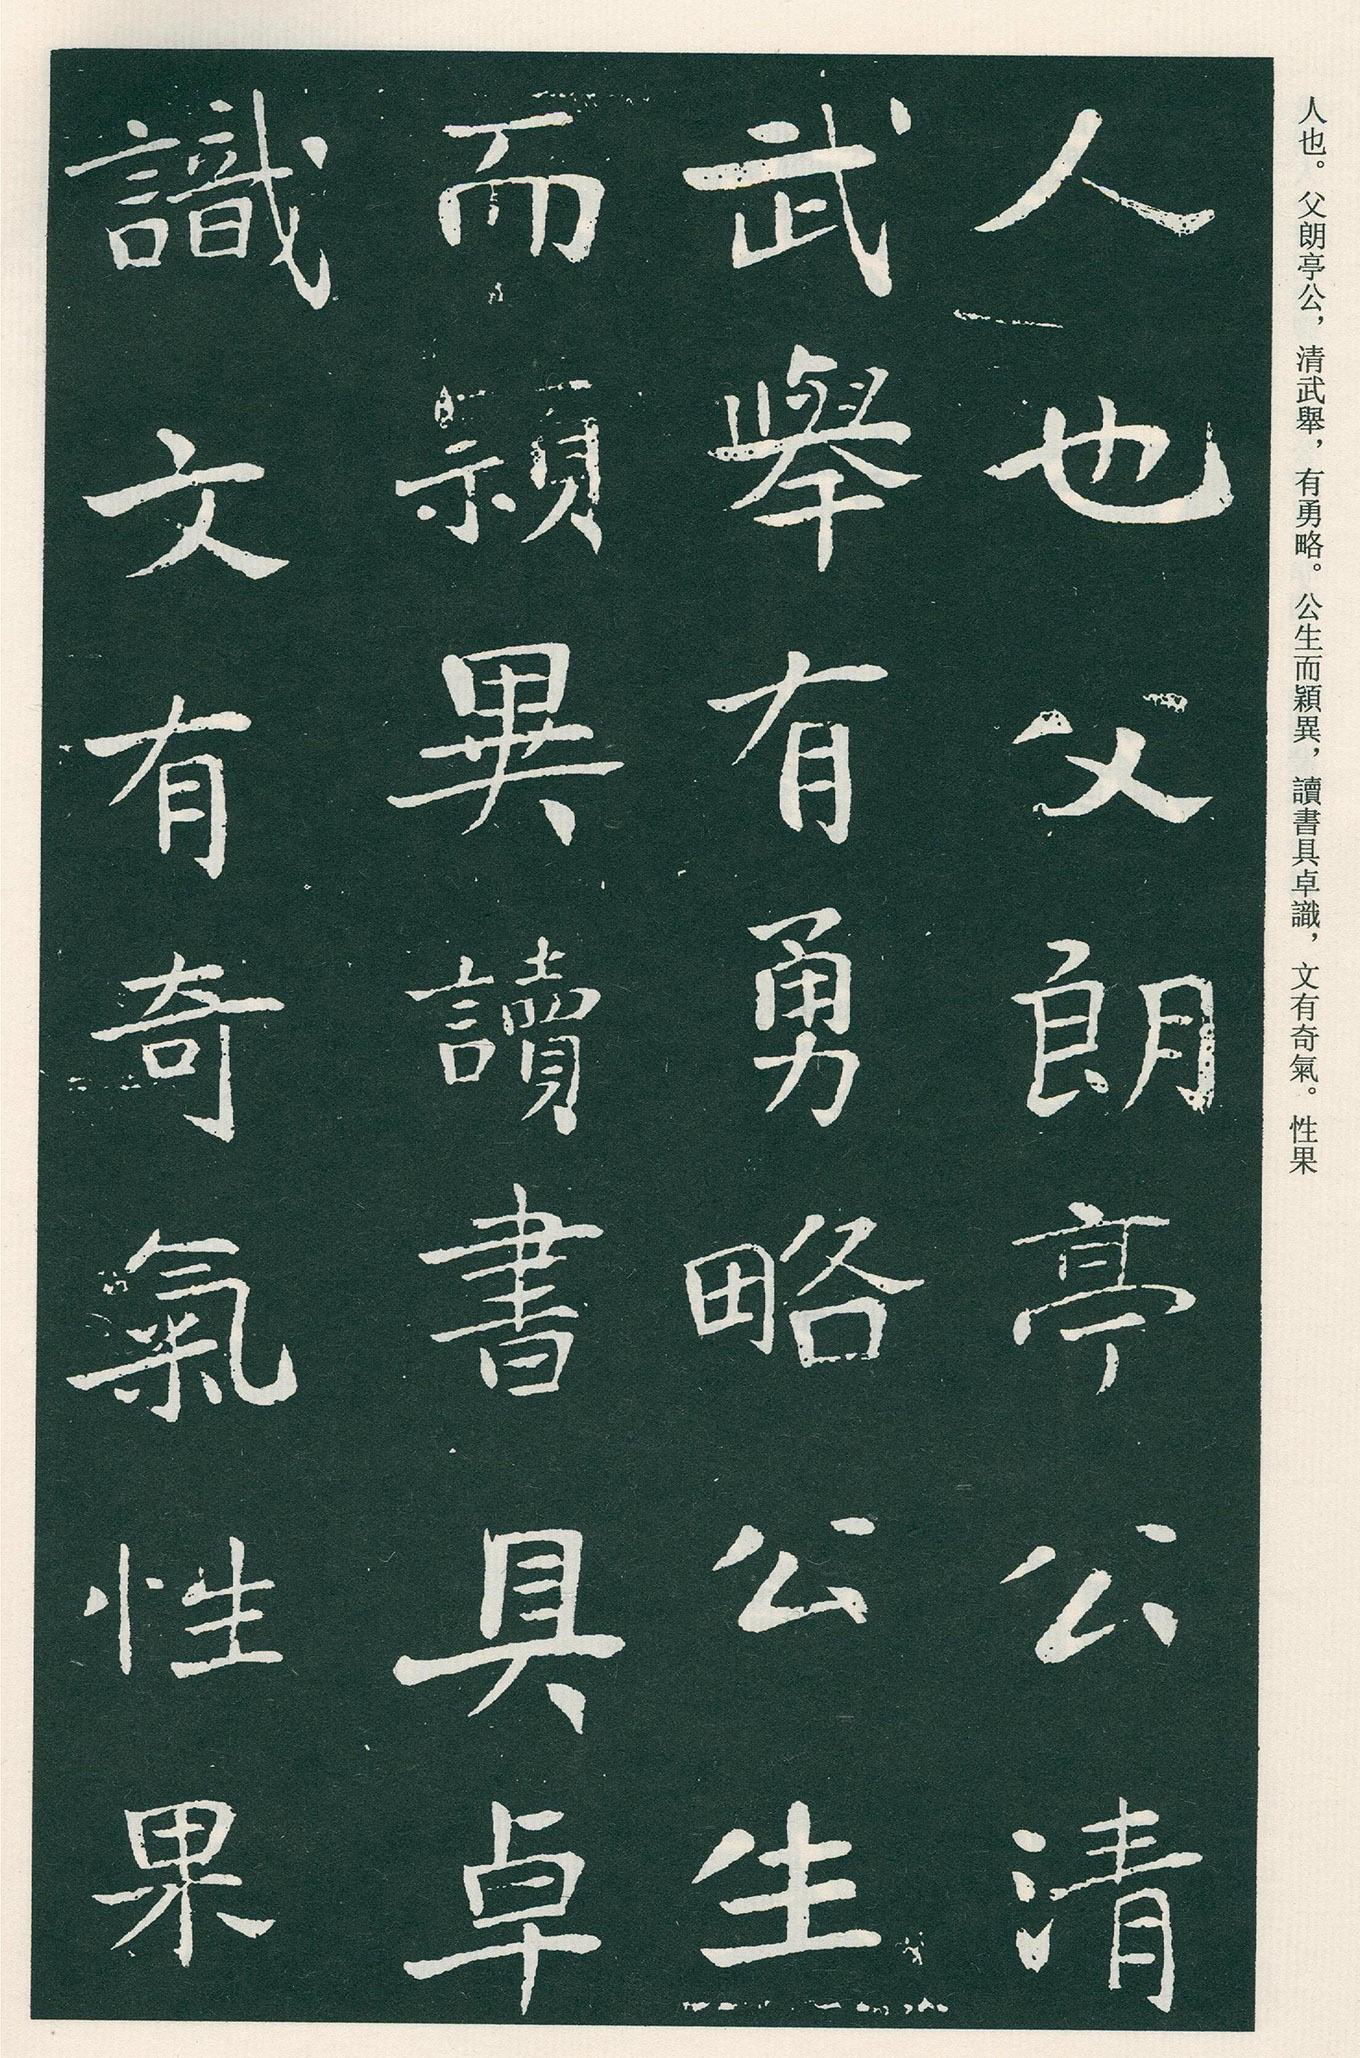 人也。父朗亭公，清武舉，有勇略。公生而穎異，讀書具卓識，文有奇氣。性果
人也父朗亭公清
武舉有勇略公生
而穎異讀書具卓
識文有奇氣性果